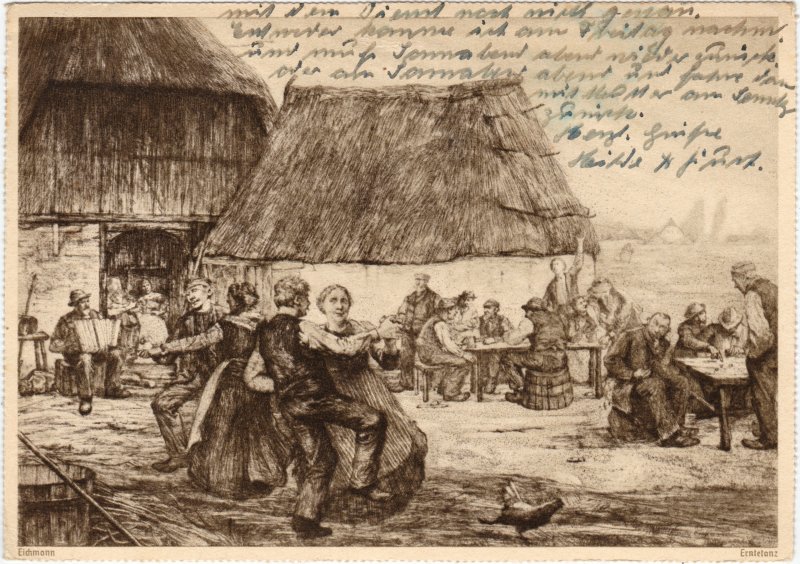 mit dem Dienst noch nicht genau.
Entweder komme ich am Freitag nachm.
und muß Sonnabend abend wieder zurück
oder am Sonnabend abend und fahre dann
mit am Sonntg
zurück.
Herzl. Grüße
Heide
Eichmann
Erntetanz